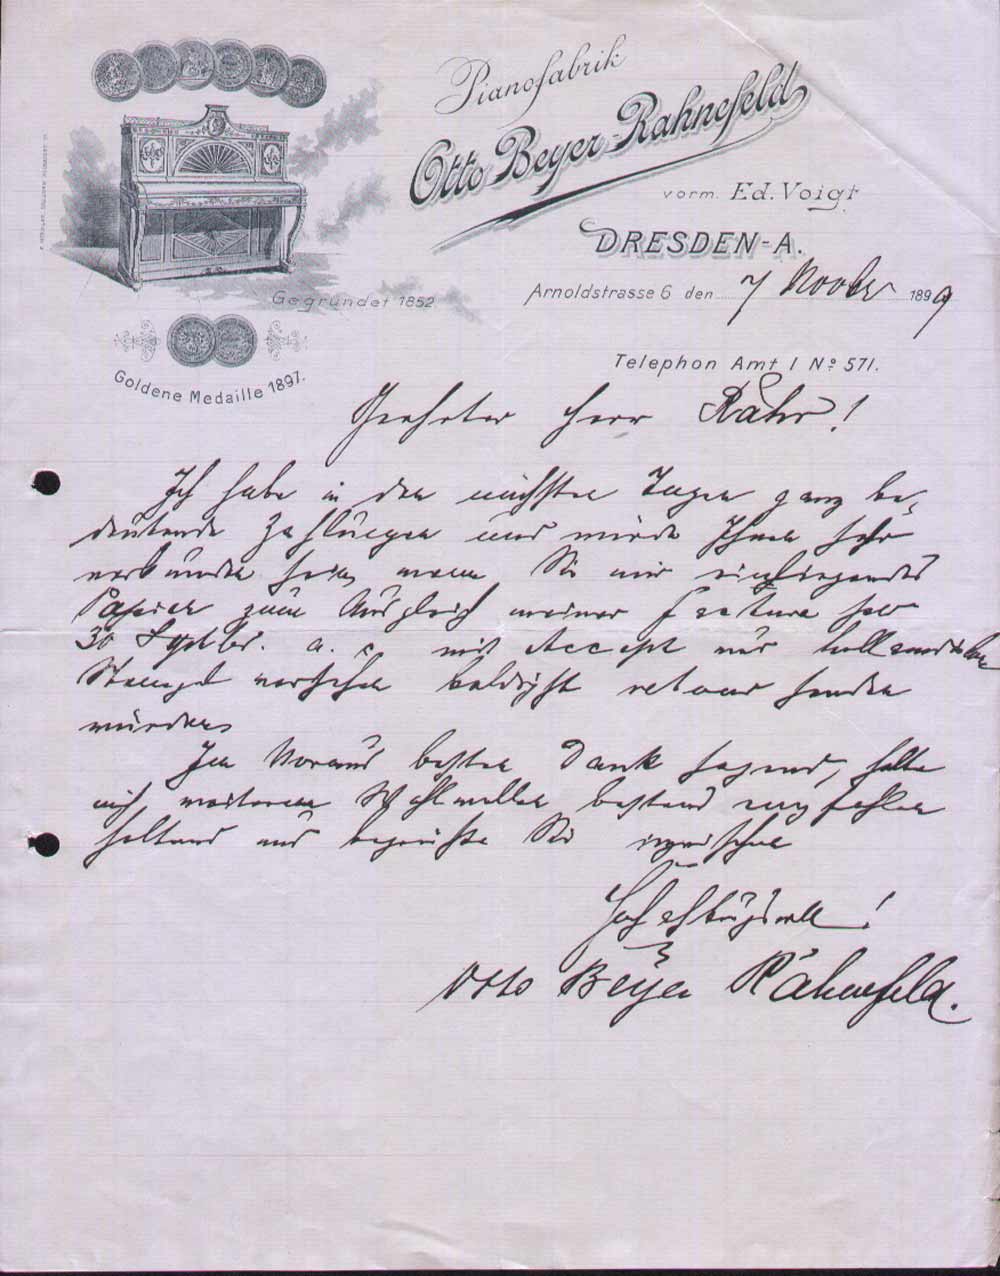 Pianofabrik
Otto Beyer-Rahnefeld
vorm. Ed. Voigt
DRESDEN-A.
Arnoldstrasse 6 den 7 Novbr 1899
Gegründet 1852
Goldene Medaille 1897.
Telephon Amt I No 571.
Geehrter Herr Rähr!
Ich habe in den nächsten Tagen ganz be-
deutende Zahlungen und würde Ihnen sehr
verbunden sein, wenn Sie mir einliegendes
Papier zum Ausgleich meiner Factura per
30 Septbr. a. c. mit Accept und
Stempel versehen baldigst retour senden
würden.
Im Voraus besten Dank sagend, halte
mich weiterem Wohlwollen bestens empfohlen
haltend und begrüße Sie inzwischen
Hochachtungsvoll!
Otto Beyer Rähnefeld.